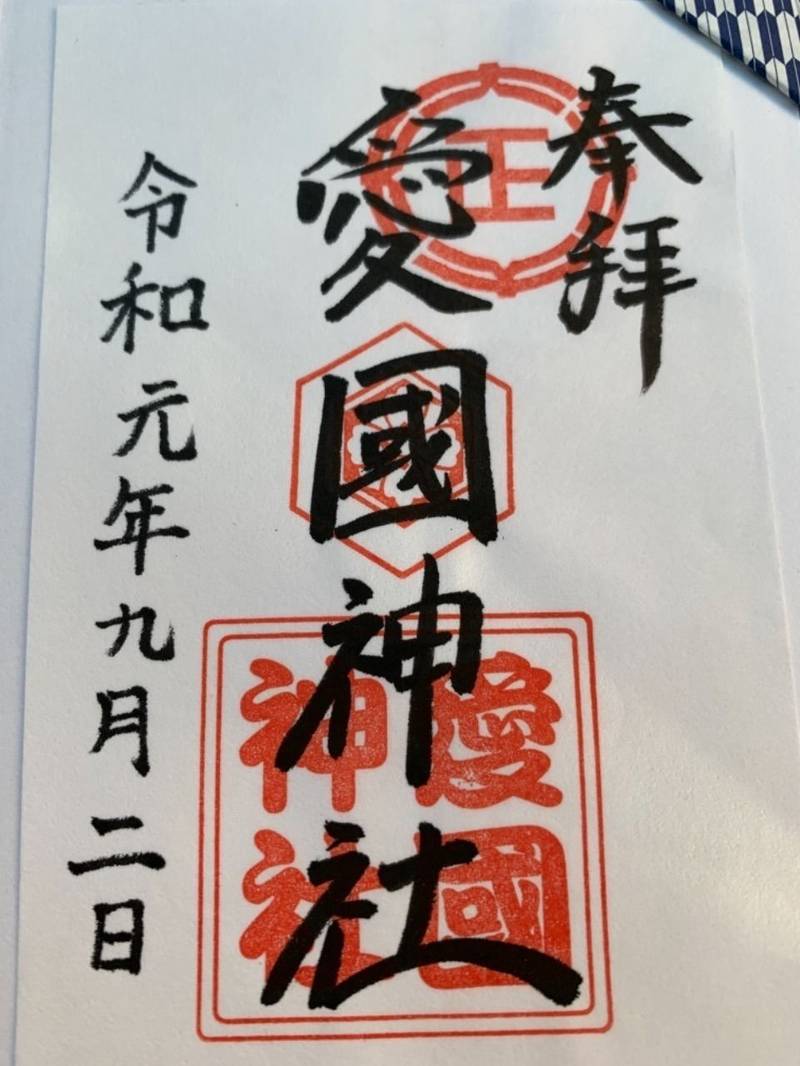 奉拜
正
愛國神社
愛國
神社
令和元年九月二日